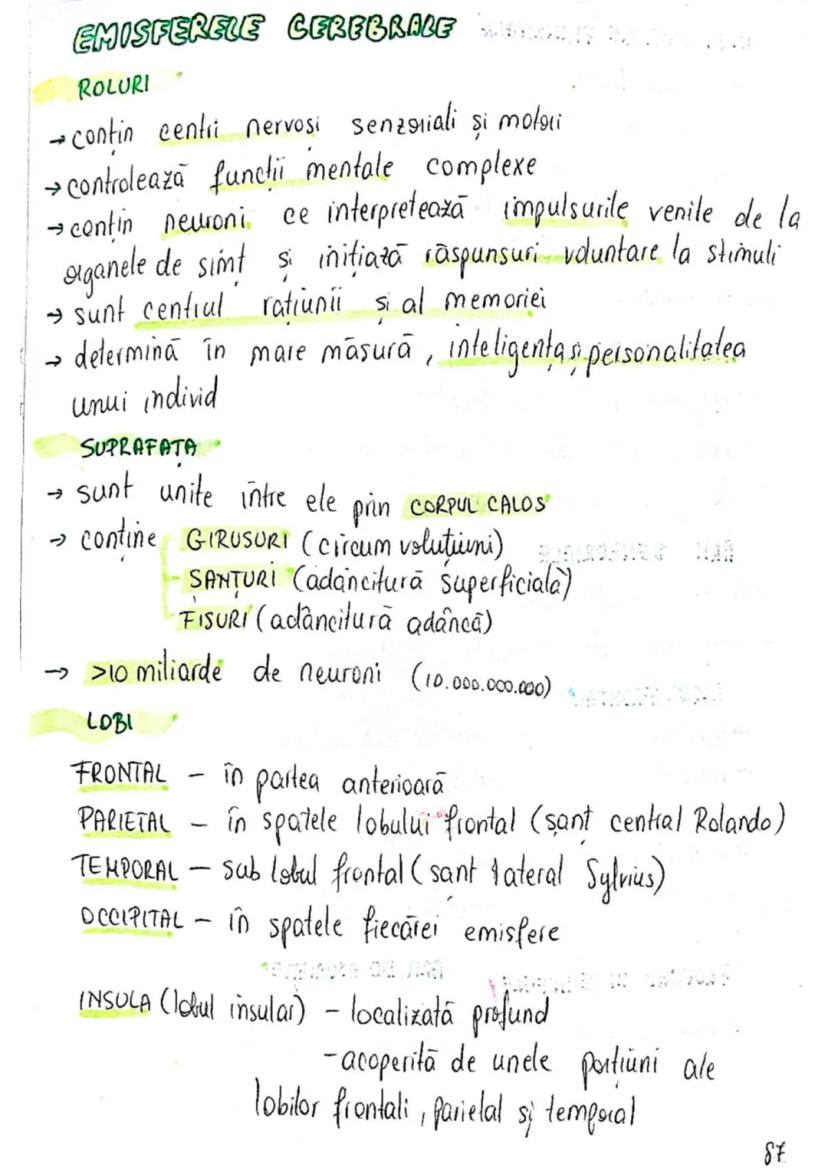 EMISFERELE CEREBRALE
ROLURI
→ conțin centri nervoși senzoriali și motori
→ controlează funcții mentale complexe
→ conțin neuroni ce interpretează impulsurile venite de la
organele de simț și inițiază răspunsuri voluntare la stimuli
→ sunt centrul rațiunii și al memoriei
→ determină în mare măsură, inteligența și personalitatea
unui individ
SUPRAFAȚA
→ sunt unite între ele prin CORPUL CALOS
→ conține GIRUSURI (circumvoluțiuni)
ȘANȚURI (adâncitură superficială)
FISURI (adâncitură adâncă)
→ >10 miliarde de neuroni (10.000.000.000)
LOBI
FRONTAL – în partea anterioară
PARIETAL – în spatele lobului frontal (șanț central Rolando)
TEMPORAL – sub lobul frontal (sant lateral Sylvius)
OCCIPITAL – în spatele fiecărei emisfere
INSULA (lobul insular) – localizată profund
- acoperită de unele porțiuni ale
lobilor frontali, parietal și temporal
87